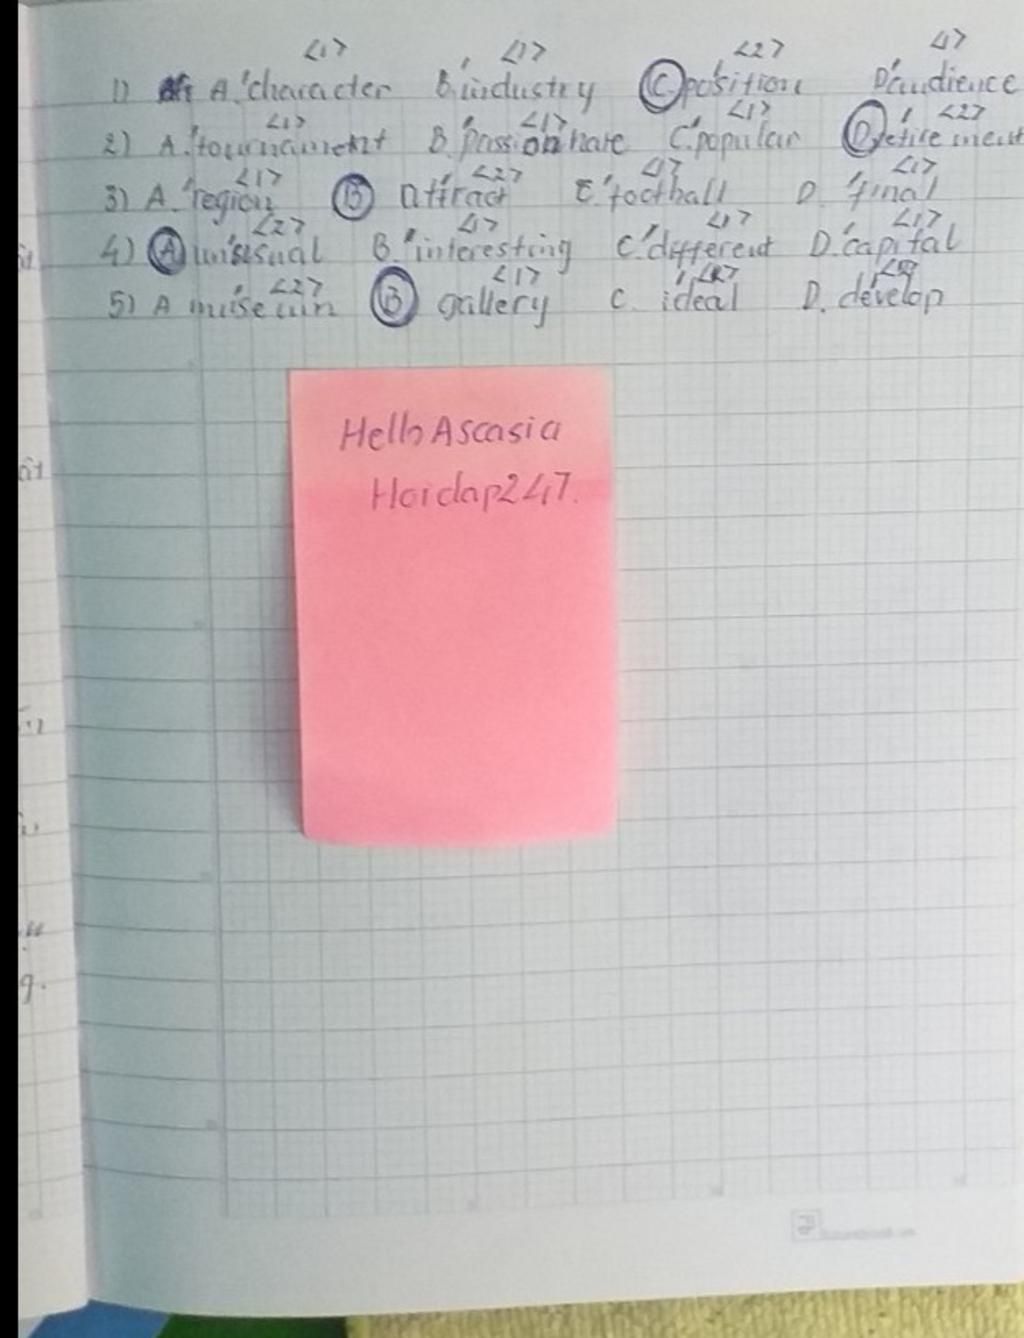 <1> <1> <2> <1>
1) A. 'character B. 'industry C. po'sition D. 'audience
<1> <1> <1> <2>
2) A. 'tournament B. 'passionate C. 'popular D. re'tirement
<1> <2> <1> <1>
3) A. 'region B. att'ract C. 'football D. 'final
<2> <1> <1> <1>
4) A. un'usual B. 'interesting C. 'different D. 'capital
<2> <1> <2>
5) A museum B gallery C. ideal D. develop
Hello Ascasia
Hoidap247.